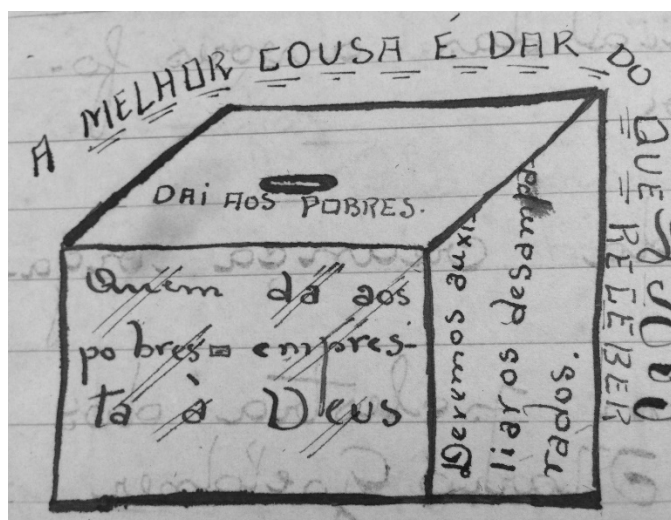 A MELHOR COUSA É DAR DO QUE RECEBER
DAI AOS POBRES.
Quem da aos
pobres = empres-
ta à Deus
Devemos auxi-
liar os desampa-
rados.